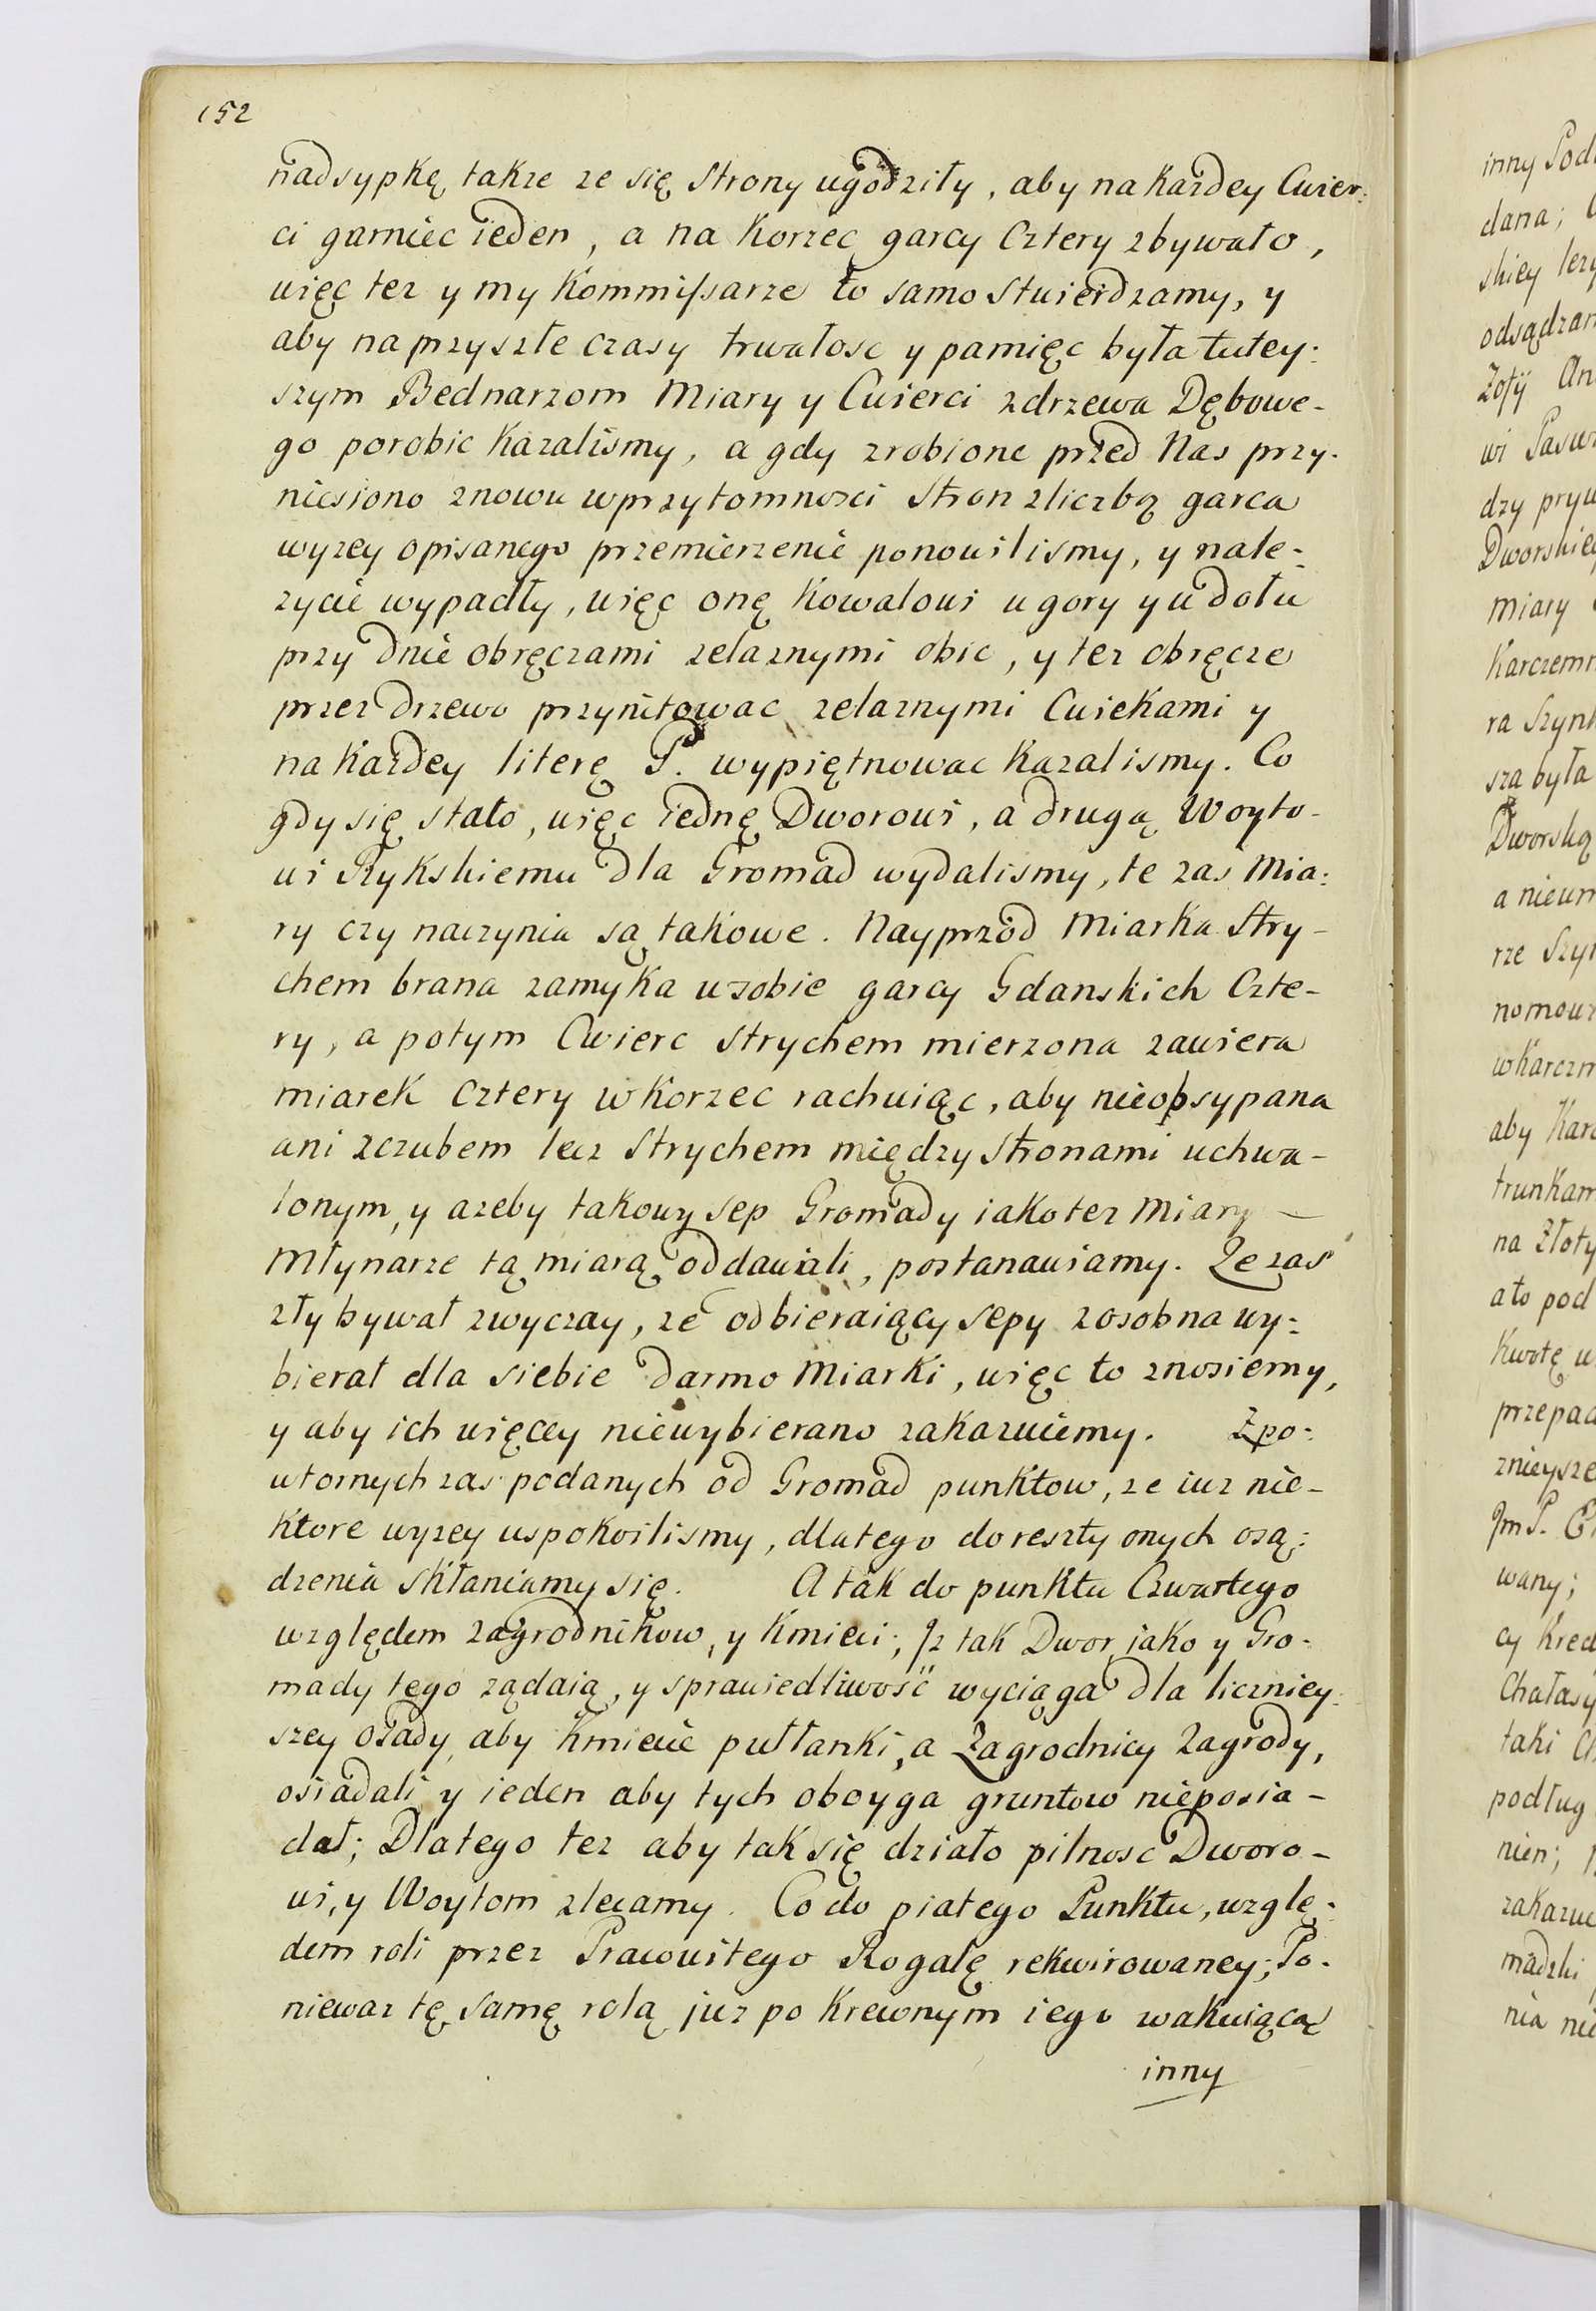 152
nadsypkę, takze ze się Strony ugodziły, aby na kazdey Cwier:
ci garniec ieden, a na Korzec garcy Cztery zbywało,
więc tez y my Kommissarze to samo Stwierdzamy, y
aby na przyszłe czasy trwałosc y pamięc była tutey:
szym Bednarzom Miary y Cwierci zdrzewa Dębowe-
go porobic Kazalismy, a gdy zrobione przed Nas przy-
niesiono znowu wprzytomnosci Stron zliczbą garca
wyzey opisanego przemierzenie ponowilismy, y nale:
zycie wypadły, więc onę Kowalowi ugory y u dołu
przy dnie obręczami zelaznymi obic, y tez obręcze
przez drzewo przynitowac zelaznymi Cwiekami y
na kazdey literę P. wypiętnowac Kazalismy. Co
gdy się stało, więc iednę Dworowi, a drugą Woyto-
wi Rykskiemu dla Gromad wydalismy, te zas Mia:
ry czy naczynia są takowe. Nayprzod Miarka Stry-
chem brana zamyka wsobie garcy Gdanskich Czte-
ry, a potym Cwierc Strychem mierzona zawiera
miarek cztery w Korzec rachuiąc, aby nieopsypana
ani zczubem lecz Strychem między Stronami uchwa-
lonym, y azeby takowy sep Gromady iako tez Miary —
Młynarze tą miarą oddawali, postanawiamy. Ze zas
zły bywał zwyczay, ze odbieraiący sepy zosobna wy:
bierał dla siebie darmo Miarki, więc to znosiemy,
y aby ich więcey niewybierano zakazuiemy. Zpo:
wtornych zas podanych od Gromad punktow, ze iuz nie-
ktore wyzey uspokoilismy, dlatego do reszty onych osą:
dzenia skłaniamy się. A tak do punktu Czwartego
względem zagrodnikow, y Kmieci; Jz tak Dwor, jako y Gro-
mady tego ządaią, y sprawiedliwość wyciąga dla liczniey:
szey osady, aby Kmiecie pułłanki, a Zagrodnicy Zagrody,
osiadali y ieden aby tych oboyga gruntow nieposia-
dał; Dlatego tez aby tak się działo pilnosc Dworo-
wi, y Woytom zlecamy. Co do piatego Punktu, wzglę:
dem roli przez Pracowitego Rogalę rekwirowaney; Po-
niewaz tę samę rolą juz po Krewnym iego wakuiącą
inny
inny Pod
dana;
skiey
odsądzam
Zofij An
wi
dzy pryw
Dworskiey
miary
Karczemn
ra Szynk
sza była
Dworską
a nieum
rze Szyn
w karczm
aby Kar
trunkam
na Złoty
a to pod
Kwotę w
przepad
znieysze
Jm P.
wany;
cy Kred
Chałasy
taki
podług
nien;
zakazu
nia nie